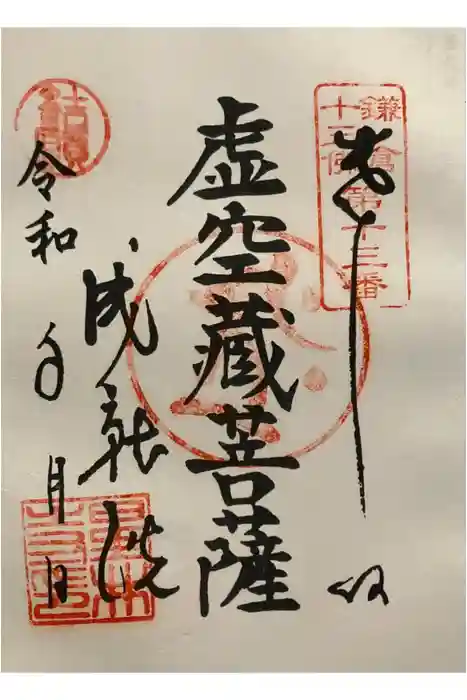 鎌倉
十三仏
第十三番
奉拝
虚空蔵菩薩
成就院
令和 年 月 日
結願